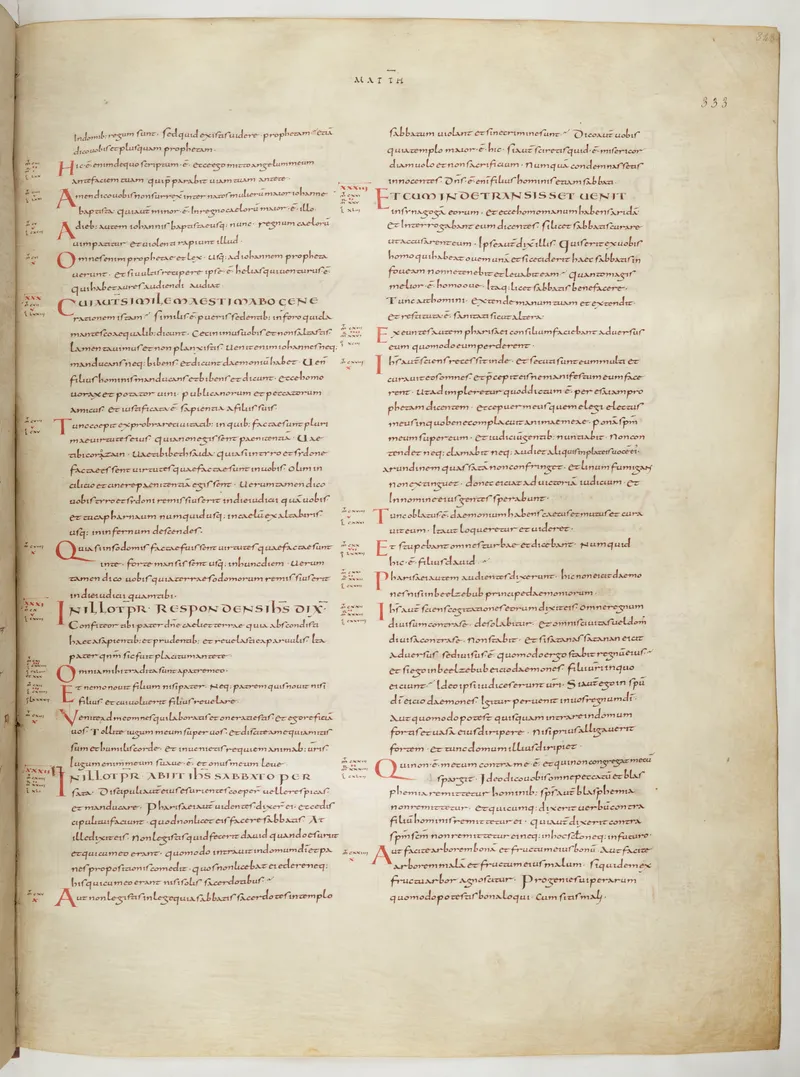 MATTH
333
Indomib; regum sunt · sed quid existis uidere · prophetam · etiā
dico uobis et plus quam prophetam ·
Hic ē enim de quo scriptum ē · ecce ego mitto angelum meum
ante faciem tuam · qui p̄parabit uiam tuam ante te ·
Amen dico uobis non surrexit inter natos mulierū maior iohanne
baptista · qui autē minor ē In regno caelorū maior ē illo ·
A dieb; autem iohannis baptistae usq; nunc · regnum caelorū
uim patitur · et uiolenti rapiunt illud ·
Omnes enim prophetae et lex · usq; ad iohannem propheta
uerunt · et si uultis recipere ipse ē helias qui uenturus ē
qui habet aures audiendi audiat
XXX
CUI AUT SIMILEM AESTIMABO GENE
rationem istam · similis ē pueris sedentib; in foro qui cla
mantes coaequalib; dicunt · Cecinimus uobis et non saltastis
lamentauimus et non planxistis · Uenit enim iohannes neq;
manducans neq; bibens et dicunt daemoniū habet · Uenit
filius hominis manducans et bibens et dicunt · ecce homo
uorax et potator uini · publicanorum et peccatorum
amicus · et iustificata ē sapientia a filiis suis
Tunc coepit exprobrare ciuitatib; in quib; factae sunt pluri
mae uirtutes eius quia non egissent paenitentiā · Uae
tibi corazain · Uae tibi bedsaida · quia si in tyro et sydone
factae essent uirtutes quae factae sunt in uobis olim in
cilicio et cinere paenitentiā egissent · Uerum tamen dico
uobis tyro et sydoni remissius erit in die iudicii quā uobis
et tu capharnaum numquid usq; in caelū exaltaberis
usq; in infernum descendes ·
Quia si in sodomis factae fuissent uirtutes quae factae sunt
in te · forte mansissent usq; in hunc diem · Uerum
tamen dico uobis quia terrae sodomorum remissius erit
in die iudicii quam tibi ·
XXXI
IN ILLO TPR RESPONDENS IHS DIX
Confiteor tibi pater dn̄e caeli et terrae quia abscondisti
haec a sapientib; et prudentib; et reuelasti ea paruulis Ita
pater qnm̄ sic fuit placitum ante te ·
Omnia mihi tradita sunt a patre meo ·
Et nemo nouit filium nisi pater · Neq; patrem quis nouit nisi
filius et cui uoluerit filius reuelare ·
Uenite ad me omnes qui laboratis et onerati estis et ego reficiā
uos · Tollite iugum meum super uos · et discite a me quia mitis
sum et humilis corde · et inuenietis requiem animab; uris
Iugum enim meum suaue ē · et onus meum leue
XXXII
IN ILLO TPR ABIIT IHS SABBATO PER
sata · Discipuli autē eius esurientes coeper uellere spicas
et manducare · Pharisaei autē uidentes dixer̄ ei · ecce dis
cipuli tui faciunt quod non licet eis facere sabbatis · At
ille dixit eis · Non legistis quid fecerit dauid quando esuriit
et qui cum eo erant · quomodo intrauit in domum dī et pa
nes propositionis comedit · quos non licebat ei edere neq;
his qui cum eo erant nisi solis sacerdotibus ·
Aut non legistis in lege quia sabbatis sacerdotes in templo
sabbatum uiolant et sine crimine sunt · Dico autē uobis
quia templo maior ē hic · si autē sciretis quid ē misericor
diam uolo et non sacrificium · Numquā condemnassetis
innocentes · Dn̄s ē enī filius hominis etiam sabbati ·
XXXIII
ET CUM INDE TRANSISSET UENIT
in synagogā eorum · et ecce homo manum habens aridā
et Interrogabant eum dicentes · si licet sabbatis curare
ut accusarent eum · Ipse autē dixit illis · Quis erit ex uobis
homo qui habeat ouem unā et si ceciderit haec sabbatis in
foueam nonne tenebit et leuabit eam · Quanto magis
melior ē homo oue · Itaq; licet sabbatis benefacere ·
Tunc ait homini · extende manum tuam et extendit ·
et restituta ē sanitati sicut altera ·
Exeuntes autem pharisaei consilium faciebant aduersus
eum quomodo eum perderent ·
Ihs autē sciens recessit inde · et secuti sunt eum multi et
curauit eos omnes et p̄cepit eis ne manifestum eum face
rent · Ut adimpleretur quod dictum ē per esaiam pro
phetam dicentem · ecce puer meus quem elegi electus
meus in quo bene complacuit animae meae · ponā spm̄
meum super eum · et iudiciū gentib; nuntiabit · Non con
tendet neq; clamabit neq; audiet aliquis in plateis uocē ei;
arundinem quassatā non confringet · et linum fumigans
non extinguet · donec eiciat ad uictoriā iudicium · et
In nomine eius gentes sperabunt ·
Tunc oblatus ē · daemonium habens caecus et mutus et cura
uit eum · Ita ut loqueretur et uideret ·
Et stupebant omnes turbae et dicebant · Numquid
hic ē filius dauid
Pharisaei autem audientes dixerunt · hic non eicit daemo
nes nisi in beelzebub principe daemoniorum
Ihs autē sciens cogitationes eorum dixit eis · Omne regnum
diuisum contra se · desolabitur · et omnis ciuitas uel dom;
diuisa contra se · non stabit · et si satanas satanan eicit
aduersus se diuisus ē · quomodo ergo stabit regnū eius
et si ego in beelzebub eicio daemones filii uri in quo
eiciunt · Ideo ipsi iudices erunt uri · Si autē ego in spū
dī eicio daemones Igitur peruenit in uos regnum dī ·
Aut quomodo potest quisquam intrare in domum
fortis et uasa eius diripere · nisi prius alligauerit
fortem · et tunc domum illius diripiet
Qui non ē mecum contra me ē · et qui non congregat mecū
spargit · Ideo dico uobis omne peccatū et blas
phemia remittetur hominib; sps̄ autē blasphemia
non remittetur · et quicumq; dixerit uerbū contra
filiū hominis remittetur ei · qui autē dixerit contra
spm̄ scm̄ non remittetur ei neq; in hoc sclo neq; in futuro ·
Aut facite arborem bonā et fructum eius bonū · Aut facite
arborem malā et fructum eius malum · siquidem ex
fructu arbor agnoscitur · Progenies uiperarum
quomodo potestis bona loqui · cum sitis mali ·